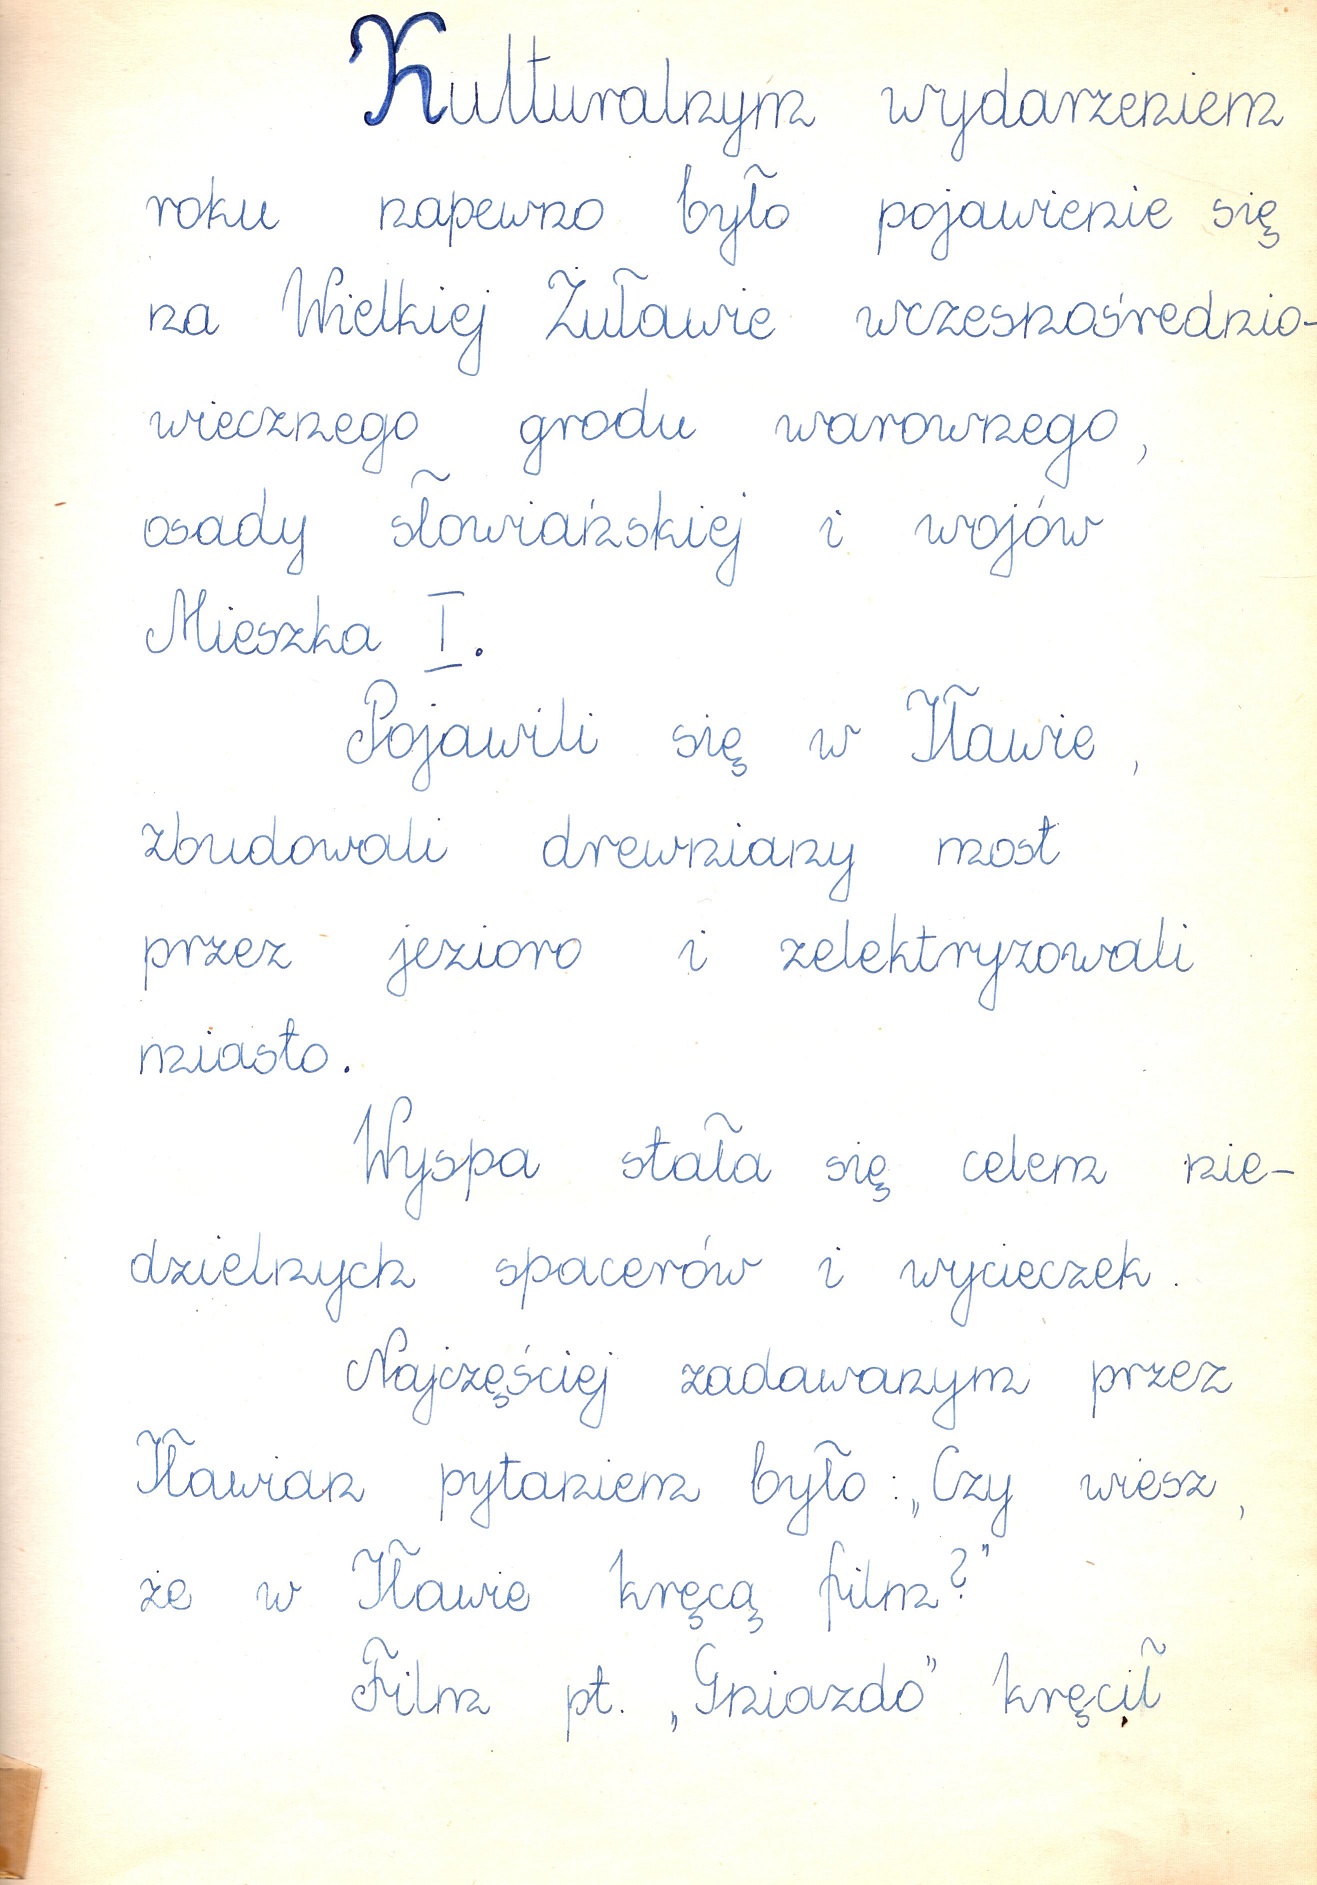 Kulturalnym wydarzeniem
roku napewno było pojawienie się
na Wielkiej Żuławie wczesnośrednio-
wiecznego grodu warownego,
osady słowiańskiej i wojów
Mieszka I.
Pojawili się w Iławie,
zbudowali drewniany most
przez jezioro i zelektryzowali
miasto.
Wyspa stała się celem nie-
dzielnych spacerów i wycieczek.
Najczęściej zadawanym przez
Iławian pytaniem było: „Czy wiesz,
że w Iławie kręcą film?"
Film pt. „Gniazdo" kręcił